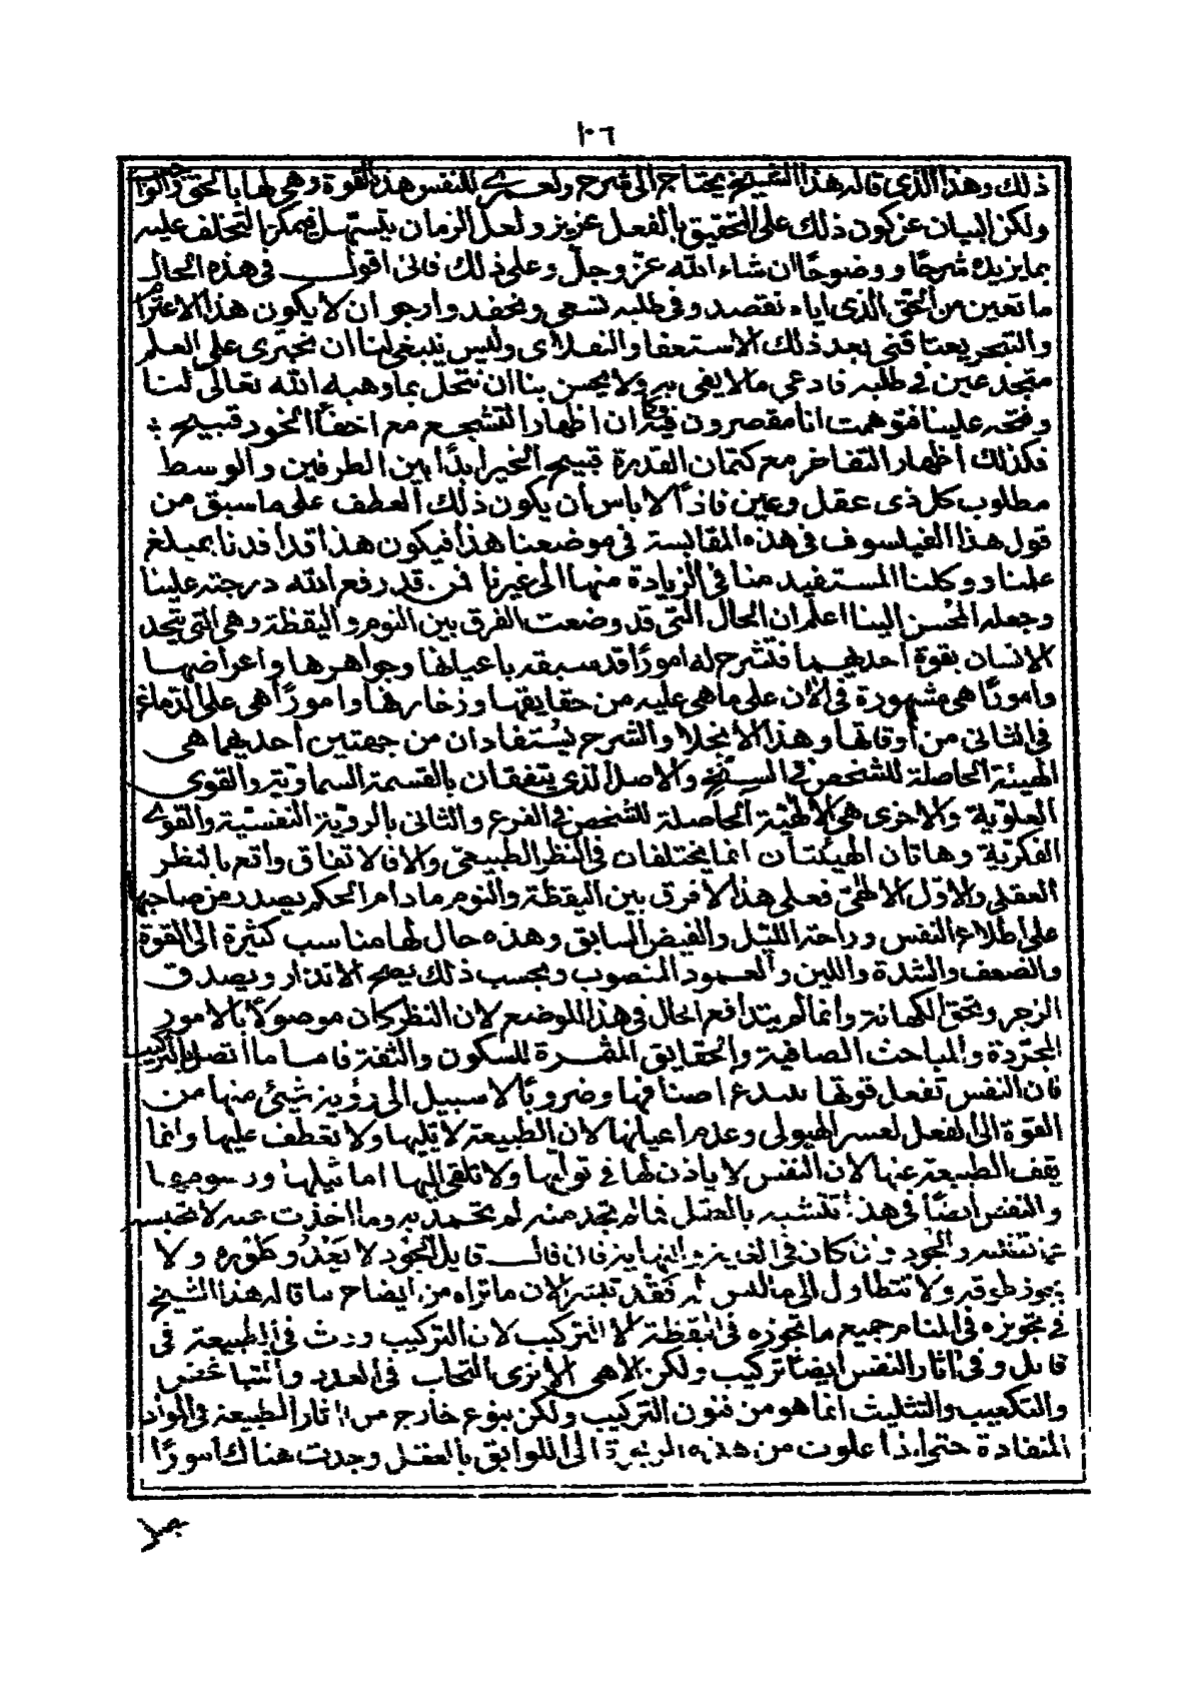 ١٠٦
ذلك وهذا الذى قاله هذا الشيخ يحتاج الى شرح ولعمرى للنفس هذه القوة وهى لها بالحق والواجب
ولكن البيان عن كون ذلك على التحقيق بالفعل عزيز ولعل الزمان يتسهل فيمكن التخلف عليه
بما يزيده شرحًا ووضوحًا ان شاء الله عزّ وجلّ وعلى ذلك فانى اقول فى هذه الحال
ما تعين من الحق الذى اياه نقصد وفى طلبه نسعى ونحفد وارجو ان لا يكون هذا الاعتزام
والتجريعنا فنى بعد ذلك الاستعفا والنفلاى وليس ينبغى لنا ان نجترى على العلم
متجذعين فى طلبه فادعى مالايفى به ولا يحسن بنا ان نتحل بما وهبه الله تعالى لنا
وفتحه علينا فتوهمت انا مقصرون فكما ان اظهار التشجع مع اخفآ الخود قبيح
فكذلك اظهار التفاخر مع كتمان القدرة قبيح الخير ابدًا بين الطرفين والوسط
مطلوب كل ذى عقل وعين فاذًا لا باس ان يكون ذلك العطف على ما سبق من
قول هذا الفيلسوف فى هذه المقابسة فى موضعنا هذا فيكون هذا قد افدنا بمبلغ
علمنا ووكلنا المستفيد منا فى الزيادة منها الى غيرنا فمن قد رفع الله درجته علينا
وجعله المحسن الينا اعلم ان الحال التى قد وضعت الفرق بين النوم واليقظة وهى التى يتجد
الانسان بقوة احديهما فتشرح له امورًا قد سبقه باعيانها وجواهرها واعراضها
وامورًا هى مشهورة فى الان على ماهى عليه من حقايقها وزخارفها وامورًا هى على التماع
فى الثانى من أوقاتها وهذا الانجلا والشرح يُستفادان من جهتين احديهما هى
الهيئة الحاصلة للشخص فى السنخ والاصل الذى يتفقان بالقسمة السماوية والقوى
العلوية والاخرى هى الهيئة الحاصلة للشخص فى الفرع والثانى بالروّية النفسيّة والقوى
الفكرية وهاتان الهيئتان انما يختلفان فى النظر الطبيعى والافالاتفاق واقع بالنظر
العقلى والاوّل الالهىّ فعلى هذا لا فرق بين اليقظة والنوم مادام الحكم يصدر من صاحبها
على اطلاع النفس وراحة الليل والفيض السابق وهذه حال لها مناسب كثيرة الى القوة
والضعف والشدة واللين والعمود المنصوب وبحسب ذلك يصح الانذار ويصدق
الزجر ويحق الكهانة وانما لم يتدافع الحال فى هذا الموضع لان النظر كان موصولًا بالامور
المجرّدة والمباحث الصافية والحقايق المثمرة للسكون والثقة فاما ما اتصل بالتركيب
فان النفس تفعل قوتها اصنافها وضروبًا لا سبيل الى رؤية شيئ منها من
القوة الى الفعل لعسر الهيولى وعدم اعيانها لان الطبيعة لا تليها ولا تعطف عليها وانما
يقف الطبيعة عنها لان النفس لا ياذن لها فى توليها ولا تلقى اليها اماثيلها ورسومها
والنفس ايضًا فى هذا تتشبه بالعقل فما لم تجد منه لم تحمد به وما اخذت عنه لا تحبسه
والجود وان كان فى الغاية فان قال قايل الجود لا يَعْدُ وطَوْره ولا
يجوز طوقه ولا تتطاول الى ما ليس له فَقَدْ تبين الان ما تراه من ايضاح ما قاله هذا الشيخ
فى تجويزه فى المنام جميع ما تجوزه فى اليقظة الا التركيب لان التركيب ورث فى الطبيعة فى
قابل وفى اثار النفس ايضًا تركيب ولكن الاهى الا ترى التحاب فى العدد والتباغض
والتكعيب والتثليث انما هو من فنون التركيب ولكن بنوع خارج من اثار الطبيعة فى المواد
المنقادة حتى اذا علوت من هذه الى اللوابق بالعقل وجدت هناك امورًا